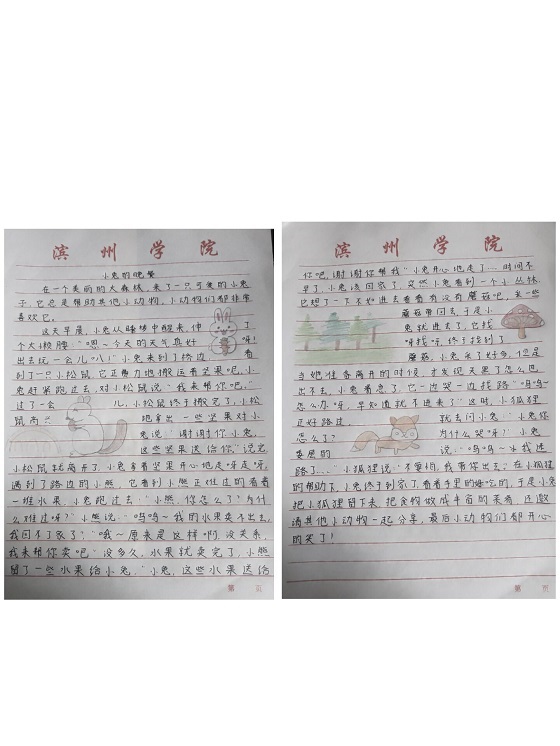 滨州学院
小兔的晚餐
在一个美丽的大森林,来了一只可爱的小兔
子,它总是帮助其他小动物,小动物们都非常
喜欢它。
这天早晨,小兔从睡梦中醒来,伸了
个大懒腰:"嗯~今天的天气真好呀!
出去玩一会儿叭!"小兔来到了桥边看
到了一只小松鼠,它正费力地搬运着坚果呢,
小兔赶紧跑过去,对小松鼠说:"我来帮你吧,"
过了一会儿,小松鼠终于搬完了,小松
鼠向地拿出一些坚果对小
兔说:"谢谢你小兔,
这些坚果送给你"说完
小松鼠就离开了,小兔拿着坚果开心地走呀走呀,
遇到了路边的小熊,它看到小熊正难过的看着
一堆水果,小兔跑过去:"小熊,你怎么了?为什
么难过呀?"小熊说:"呜呜~我的水果卖不出去,
我回不了家了?"哦~原来是这样啊,没关系,
我来帮你卖吧"没多久,水果就卖完了,小熊
留了一些水果给小兔,"小兔,这些水果送给
第 页
滨州学院
你吧,谢谢你帮我"小兔开心地走了…时间不
早了,小兔该回家了,突然小兔看到一个小丛林,
它想了一下不如进去看看有没有蘑菇吧,采一些
蘑菇带回去,于是小
兔就进去了,它找
呀找呀,终于找到了
蘑菇,小兔采了好多,但是
当她准备离开的时候,才发现天黑了怎么也
出不去,小兔着急了,它一边哭一边找路"呜呜~
怎么办呀,早知道就不进来了"这时,小狐狸
正好路过,就去问小兔"小兔你
怎么了?为什么哭呀?"小兔
委屈的说:"呜呜~我迷
路了…"小狐狸说:"不要怕,我带你出去,在小狐狸
的帮助下,小兔终于到家了,看着手里的,于是小兔
把小狐狸留下来,把食物做成丰富的菜肴,还邀
请其他小动物一起分享,最后小动物们都开心
的笑了!
第 页